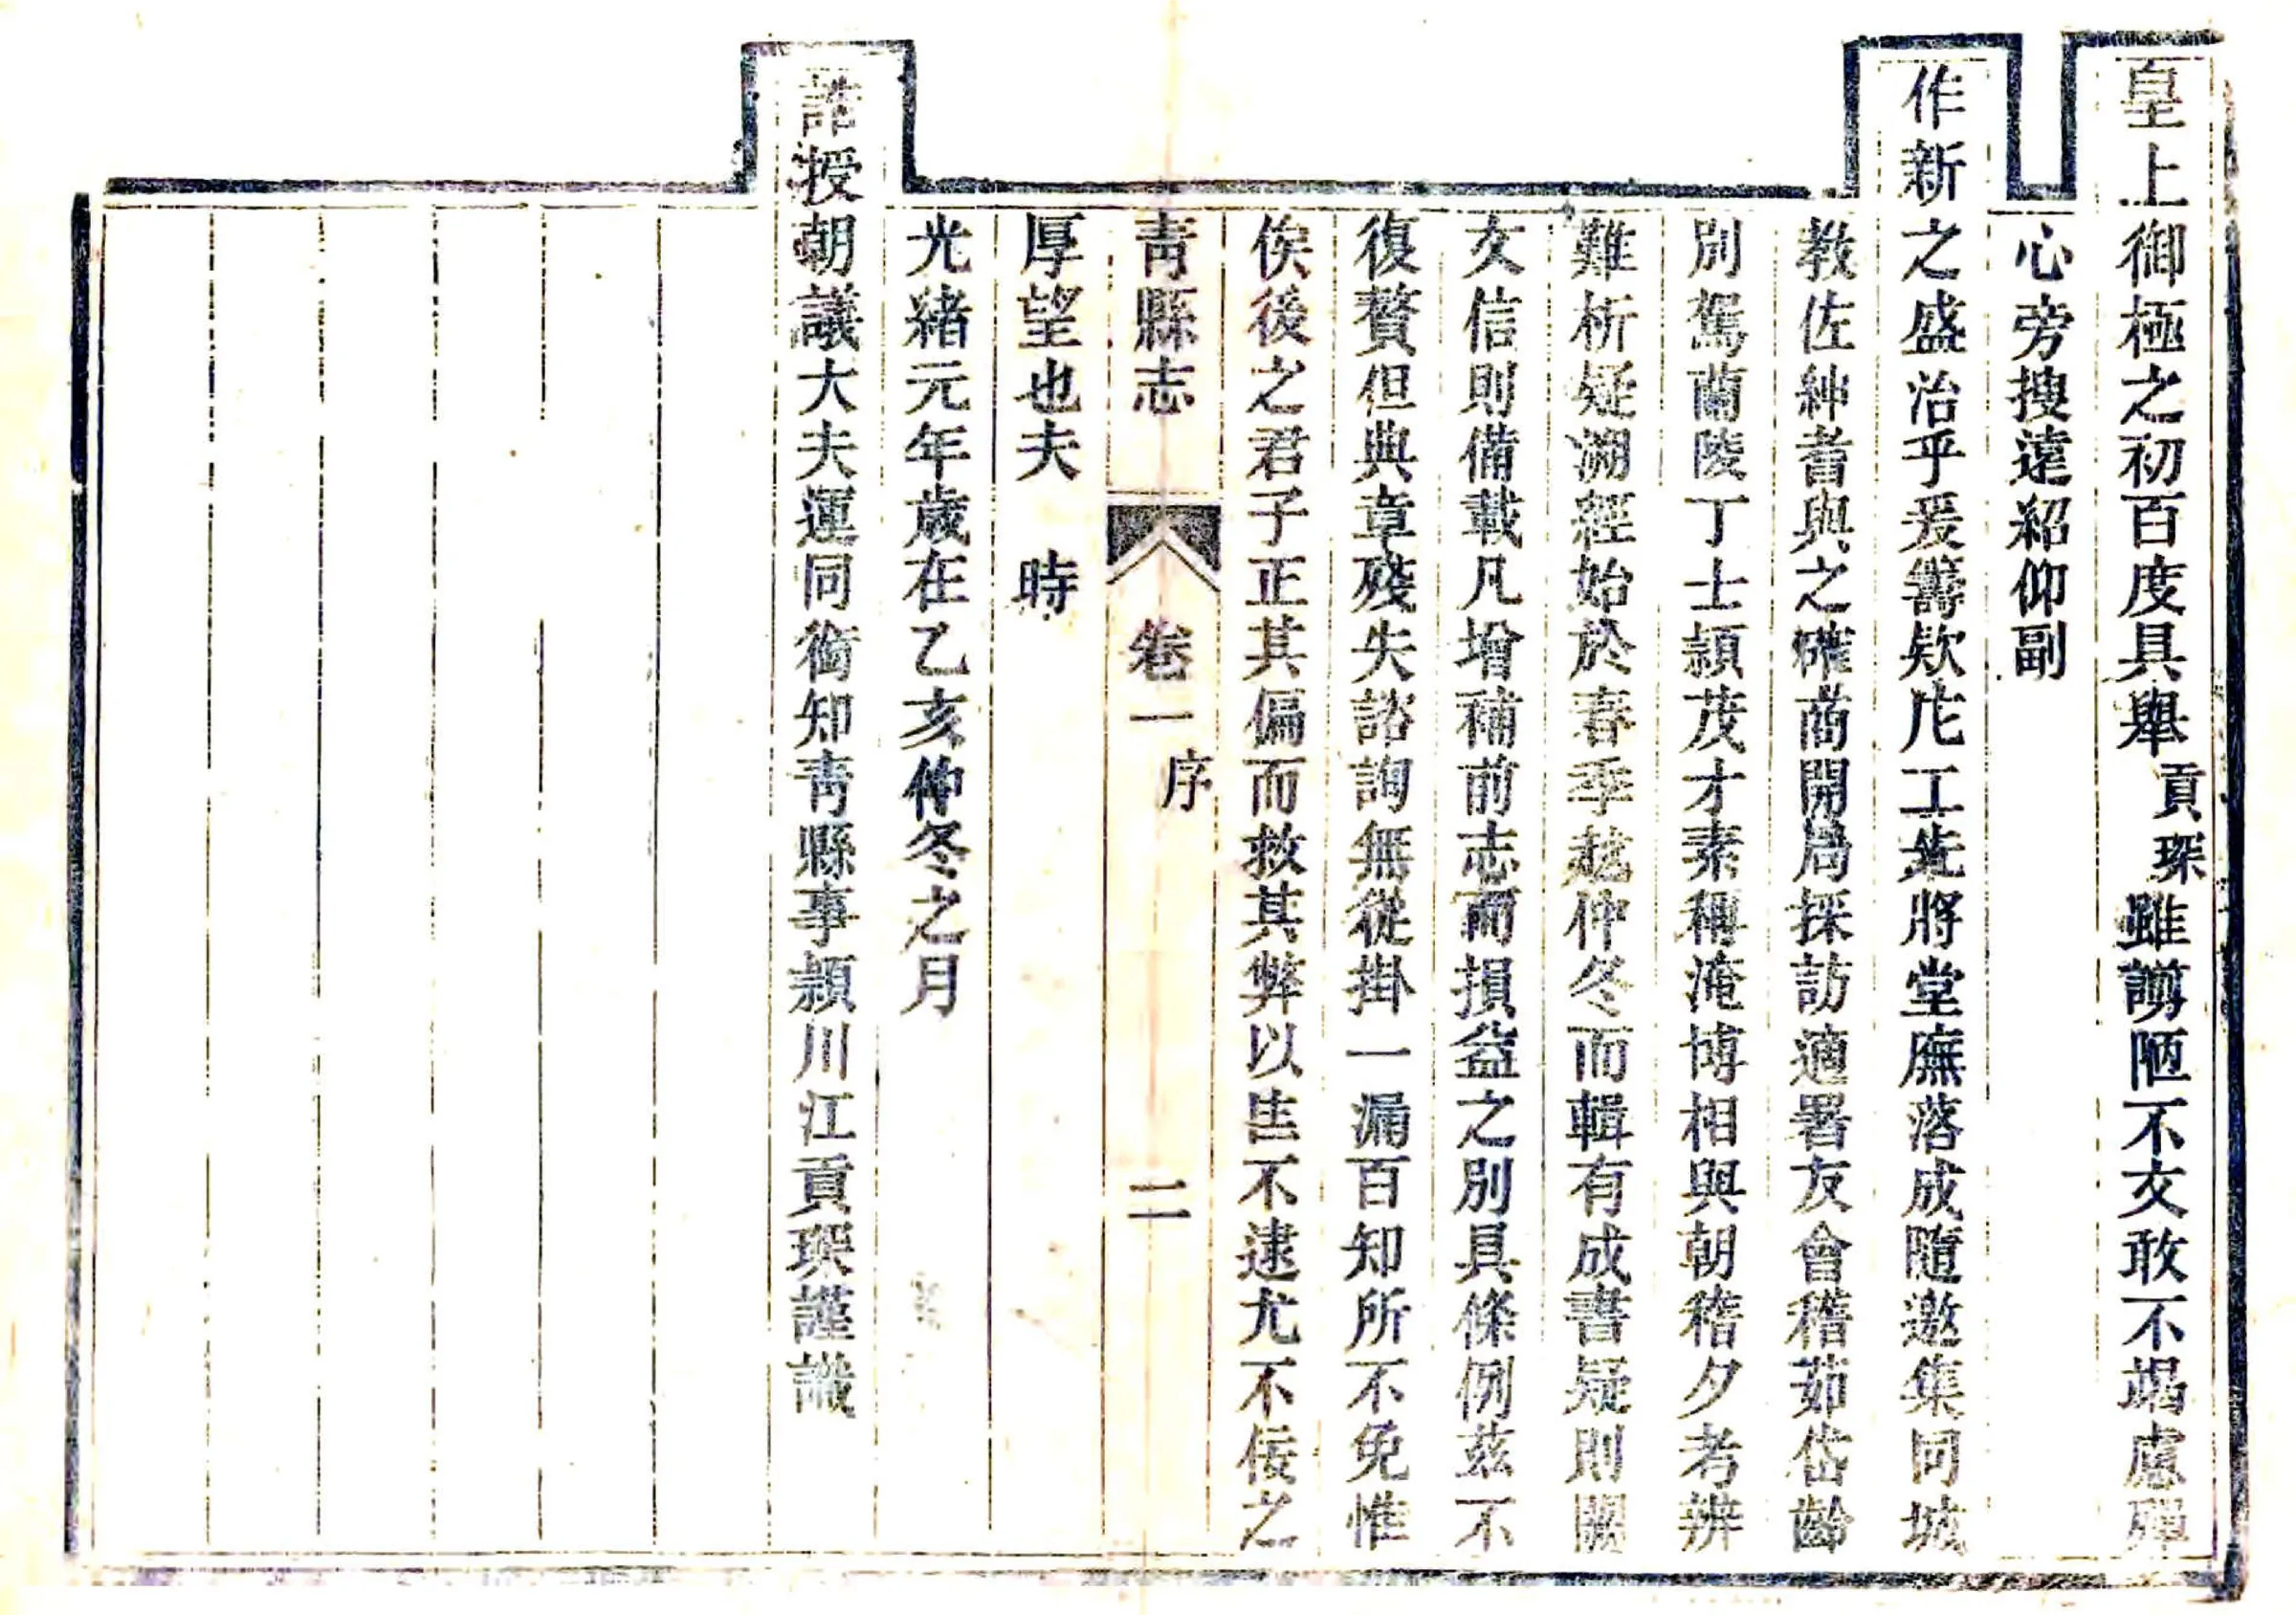 皇上御極之初百度具舉貢琛雖謭陋不文敢不竭慮殫
心旁搜遠紹仰副
作新之盛治乎爰籌欵庀工先將堂廡落成隨邀集同城
教佐紳耆與之確商開局採訪適署友會稽茹岱齡
別駕蘭陵丁士穎茂才素稱淹博相與朝稽夕考辨
難析疑溯經始於春季越仲冬而輯有成書疑則闕
文信則備載凡增補前志而損益之別具條例茲不
復贅但典章殘失諮詢無從掛一漏百知所不免惟
俟後之君子正其偏而救其弊以匡不逮尤不佞之
青縣志 卷一 序 二
厚望也夫 時
光緒元年歲在乙亥仲冬之月
誥授朝議大夫運同銜知青縣事潁川江貢琛謹識